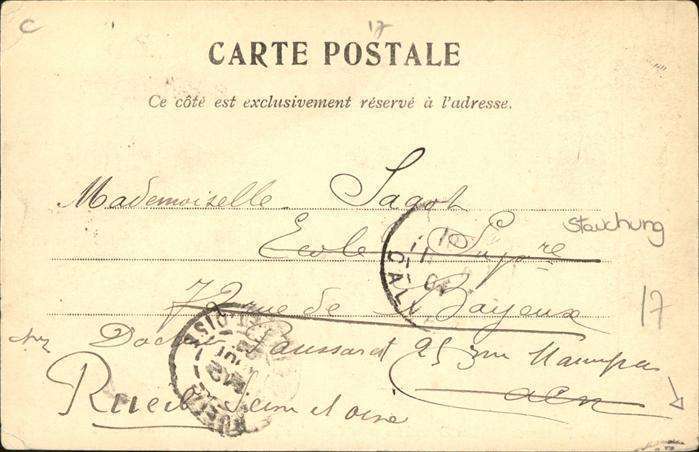 C 17
CARTE POSTALE
Ce côté est exclusivement réservé à l'adresse.
Mademoiselle Sagot
Ecole Supre
Stauchung
72 rue de Bayeux
17
chez Docteur 25 rue
Caen
Rueil Seine et Oise